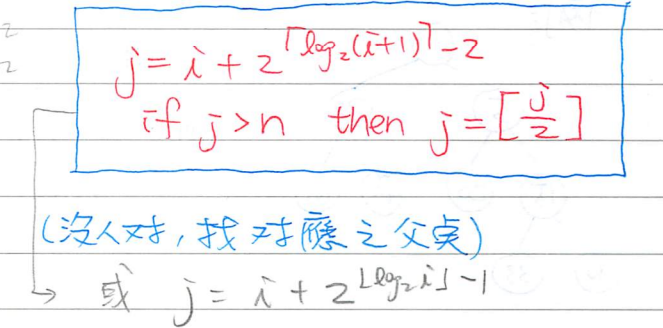 2
2
j = i + 2^{⌈log₂(i+1)⌉-2}
if j > n then j = [j/2]
(沒人对, 找对應之父点)
或 j = i + 2^{⌊log₂i⌋-1}